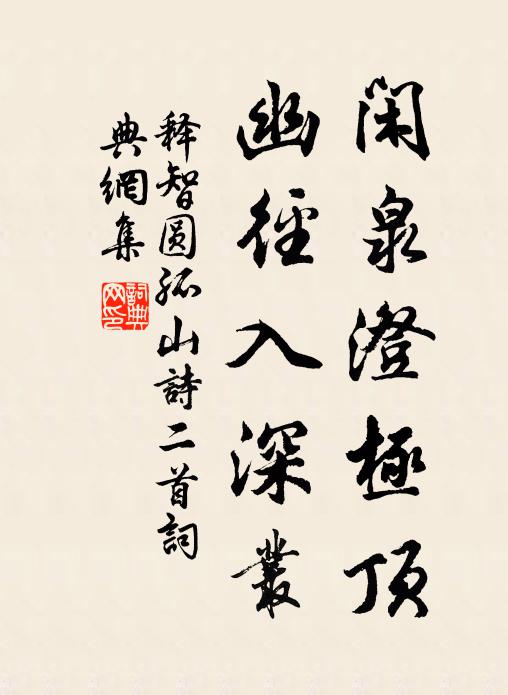 闲泉澄極顶
幽徑入深叢
释智圆孤山詩二首詞
典網集
詞典
网印